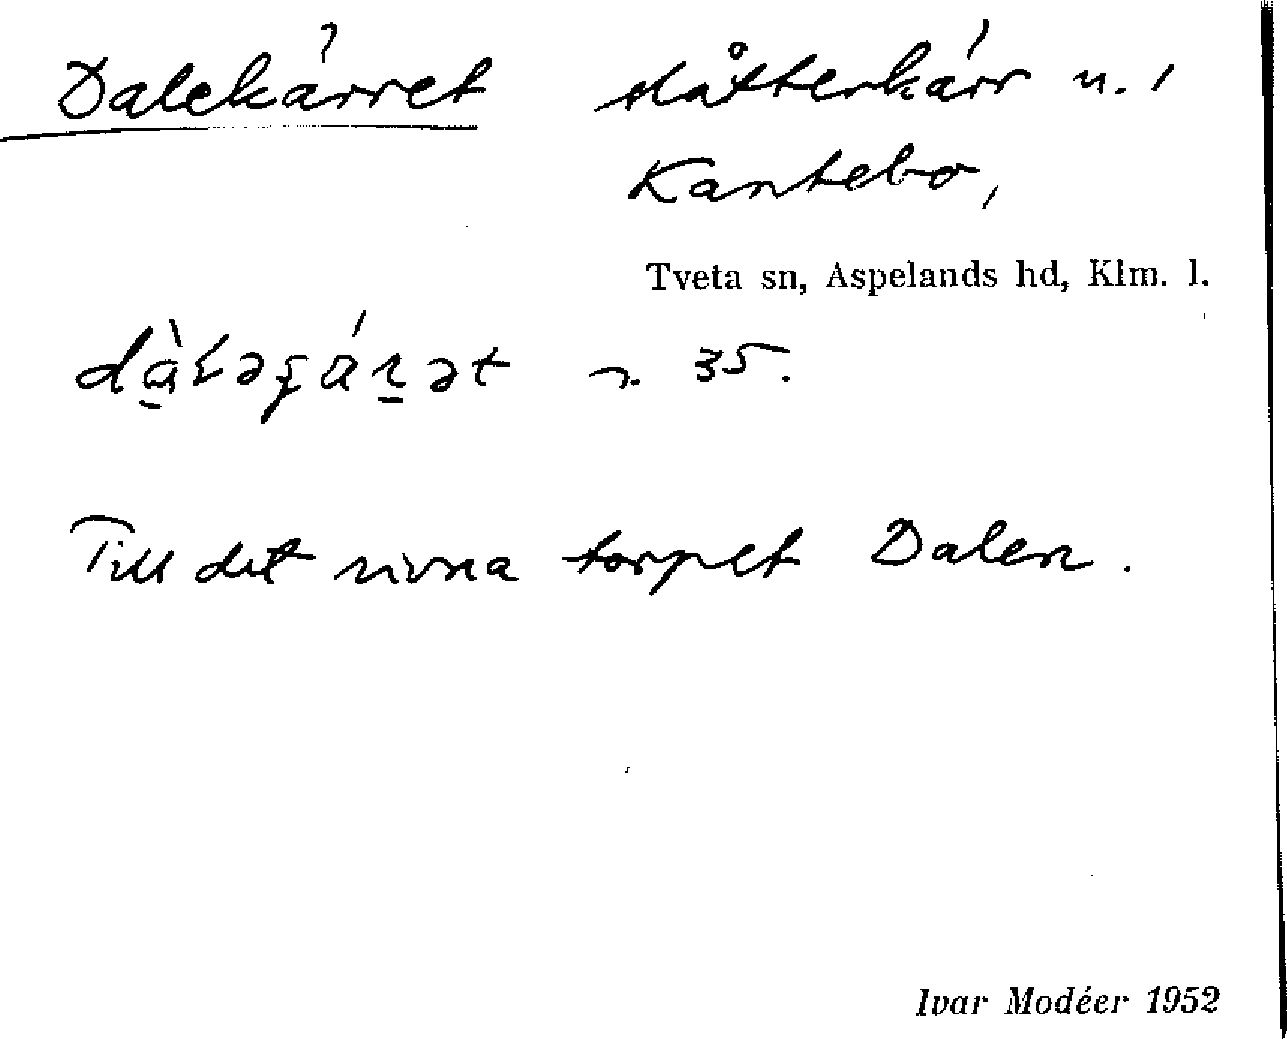 Dalekärret slåtterkärr u. /
Kantebo,
Tveta sn, Aspelands hd, Klm. l.
35.
Till det rivna torpet Dalen.
Ivar Modéer 1952